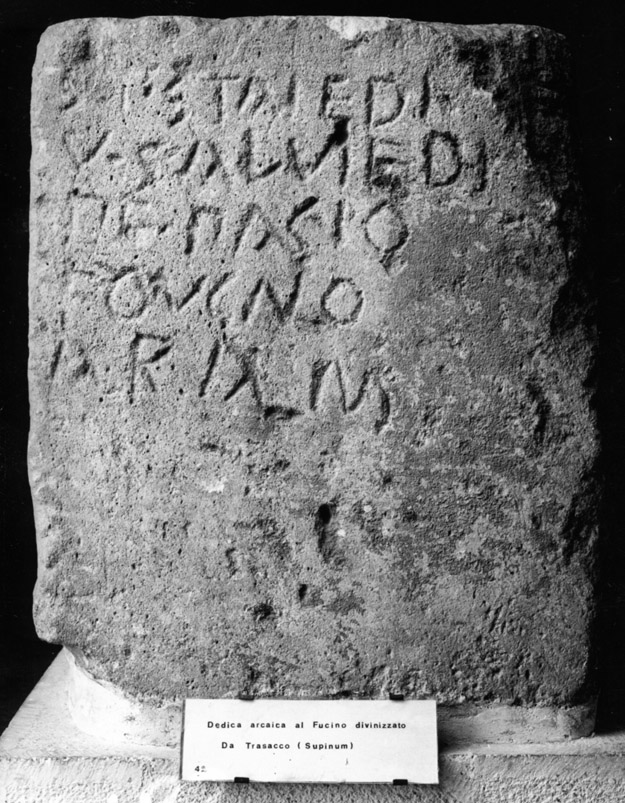 ST·STAIEDI·
V·SALVIEDI
PE·PAGIO
FOVGNO
ARAM
Dedica arcaica al Fucino divinizzato
Da Trasacco (Supinum)